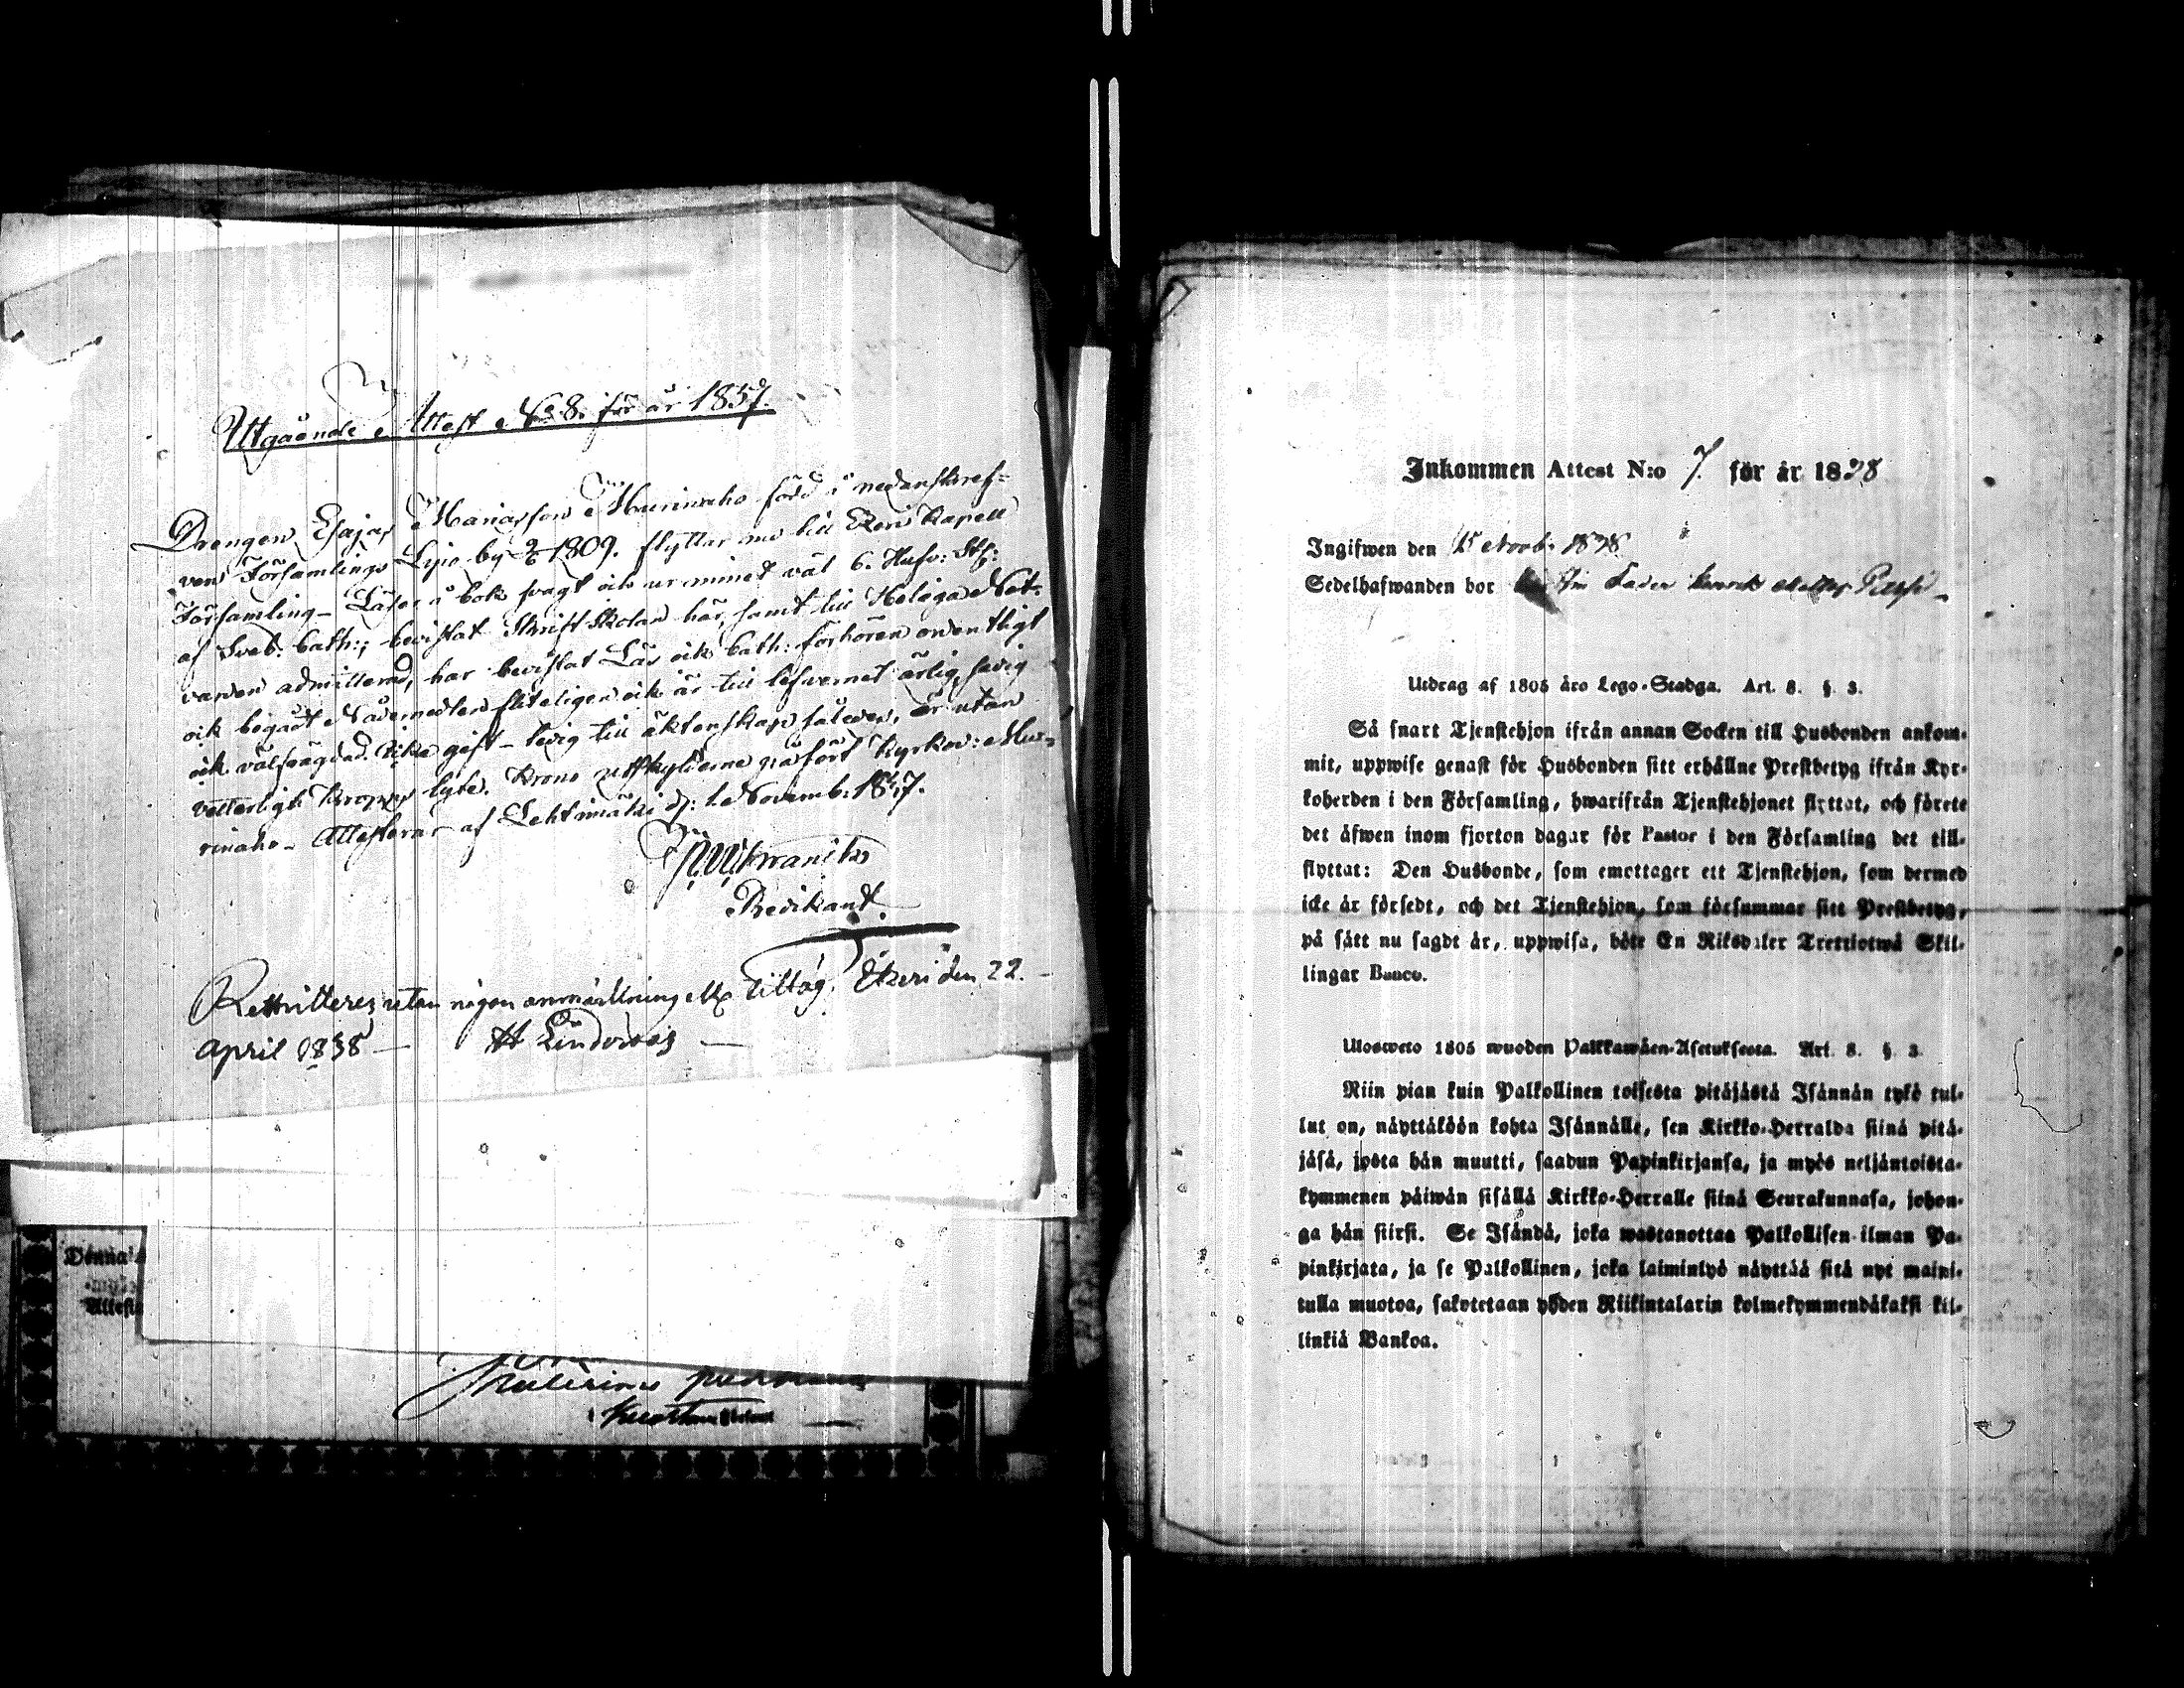 Utgående Attest No 8. för år 1837.
Drengen Esajas Mariasson Murinaho född i nedanskref-
ven Församlings Lypo by 1809. flyttar nu till Etzeri Kapell
Församling - Läser i bok svagt och ur minnet väl 6. Hufv: St:
af Sveb: Cath:, bevistat Skriftskolan här, samt till Heliga Natt-
varden admitterad, har bevistat Läs och Cath: förhören ordentligt
och begådt Nådemedlen fliteligen och är till lefvernet ärlig, sedig
och välfrägdad. Icke gift - ledig till äktenskap således, är utan
vetterligt kropps lyte. Krono utskylderne påfört Kyrkov: Mu-
rinaho - Attesterar af Lehtimäki d: 1 Novemb: 1837.
Predikant.
Retstitteres utan någon anmärkning Etzeri den 22.
April 1838 —
Denna
Attest
Inkommen Attest N:o 7. för år 1838
Ingifwen den 15 Novb. 1838
Sedelhafwanden bor Fader Henrik
Utdrag af 1805 års Lego-Stadga. Art. 8. §. 3.
Så snart Tjenstehjon ifrån annan Socken till Husbonden ankom-
mit, uppwise genast för Husbonden sitt erhållne Prestbetyg ifrån Kyr-
koherden i den Församling, hwarifrån Tjenstehjonet flyttat, och förete
det äfwen inom fjorton dagar för Pastor i den Församling det till-
flyttat: Den Husbonde, som emottager ett Tjenstehjon, som dermed
icke är försedt, och det Tjenstehjon, som försummar sitt Prestbetyg,
på sätt nu sagdt är, uppwisa, böte En Riksdaler Trettiotwå Skil-
lingar Banco.
Ulosweto 1805 wuoden Palkkawäen-Asetuksesta. Art. 8. §. 3.
Niin pian kuin Palkollinen toisesta pitäjästä Isännän tykö tul-
lut on, näyttäköön kohta Isännälle, sen Kirkko-Herralda siinä pitä-
jäsä, josta hän muutti, saadun Papinkirjansa, ja myös neljäntoista-
kymmenen päiwän sisällä Kirkko-Herralle siinä Seurakunnasa, johon-
ga hän siirsi. Se Isändä, joka wastanottaa Palkollisen ilman Pa-
pinkirjata, ja se Palkollinen, joka laiminlyö näyttää sitä nyt maini-
tulla muotoa, sakotetaan yhden Riikintalarin kolmekymmendäkaksi kil-
linkiä Bankoa.